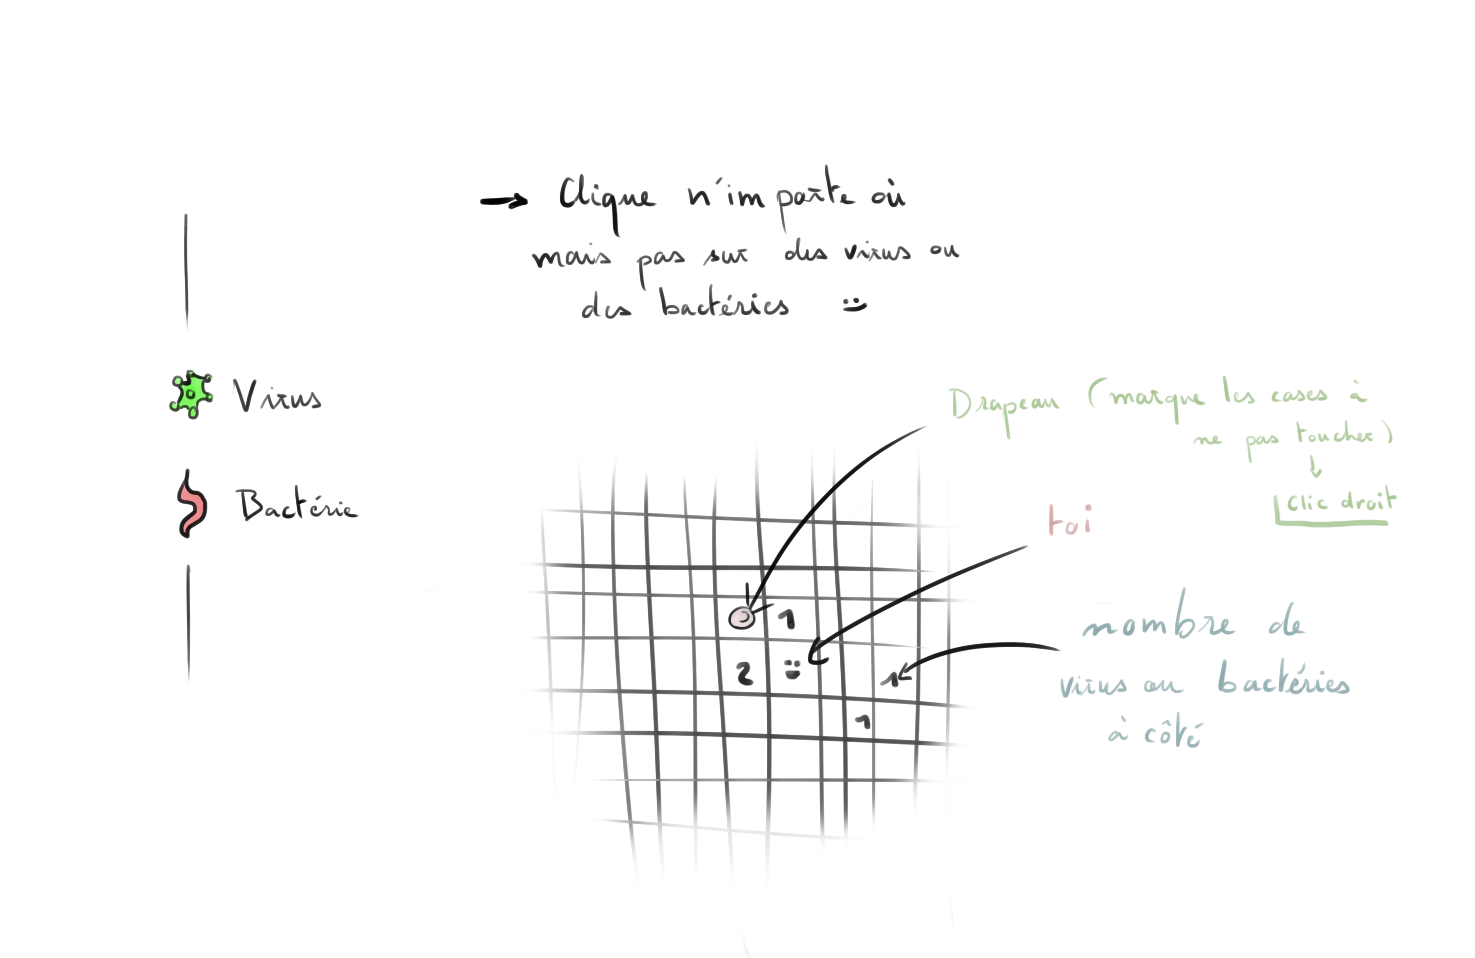 → Clique n'importe où
mais pas sur des virus ou
des bactéries
Virus
Bactérie
Drapeau (marque les cases à
ne pas toucher)
Clic droit
toi
1
2
1
1
nombre de
virus ou bactéries
à côté